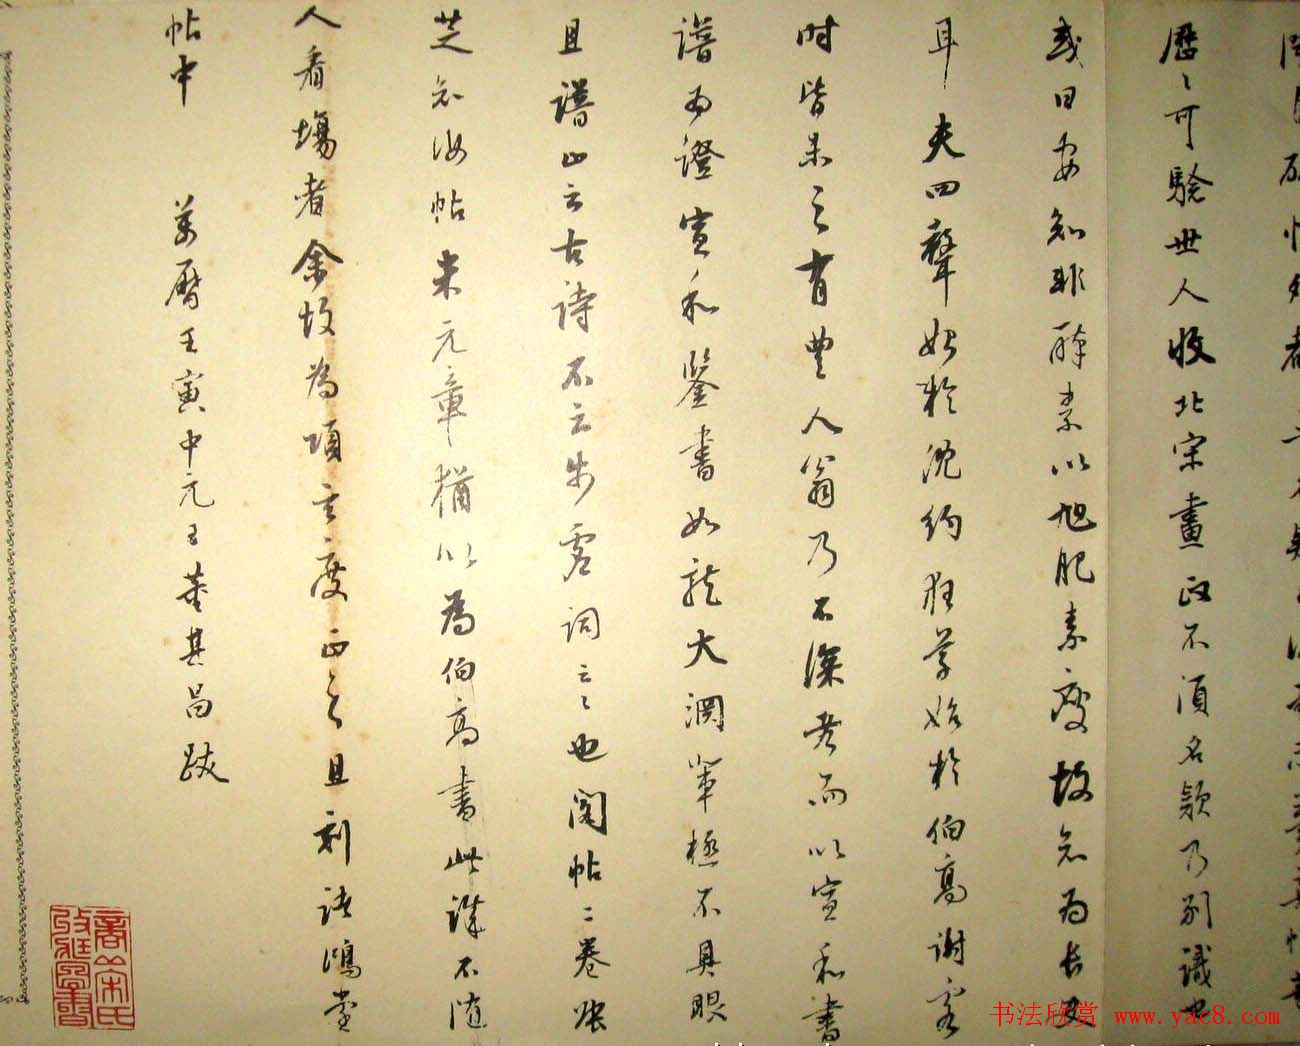 歷〻可驗世人收北宋畫政不須名款乃別識也
或曰安知非醉素以旭肥素瘦故知為長史
耳夫四聲始於沈約狂草始於伯高謝客
時皆未之有豐人翁乃不深考而以宣和書
譜為證宣和鑒書如龍大淵輩極不具眼
且譜止云古詩不云步虛詞云〻也閣帖二卷張
芝知汝帖米元章猶以為伯高書此誰不隨
人看場者余故為項玄度正之且刻諸鴻堂
帖中 萬曆壬寅中元日董其昌跋
书法欣赏 www.yac8.com